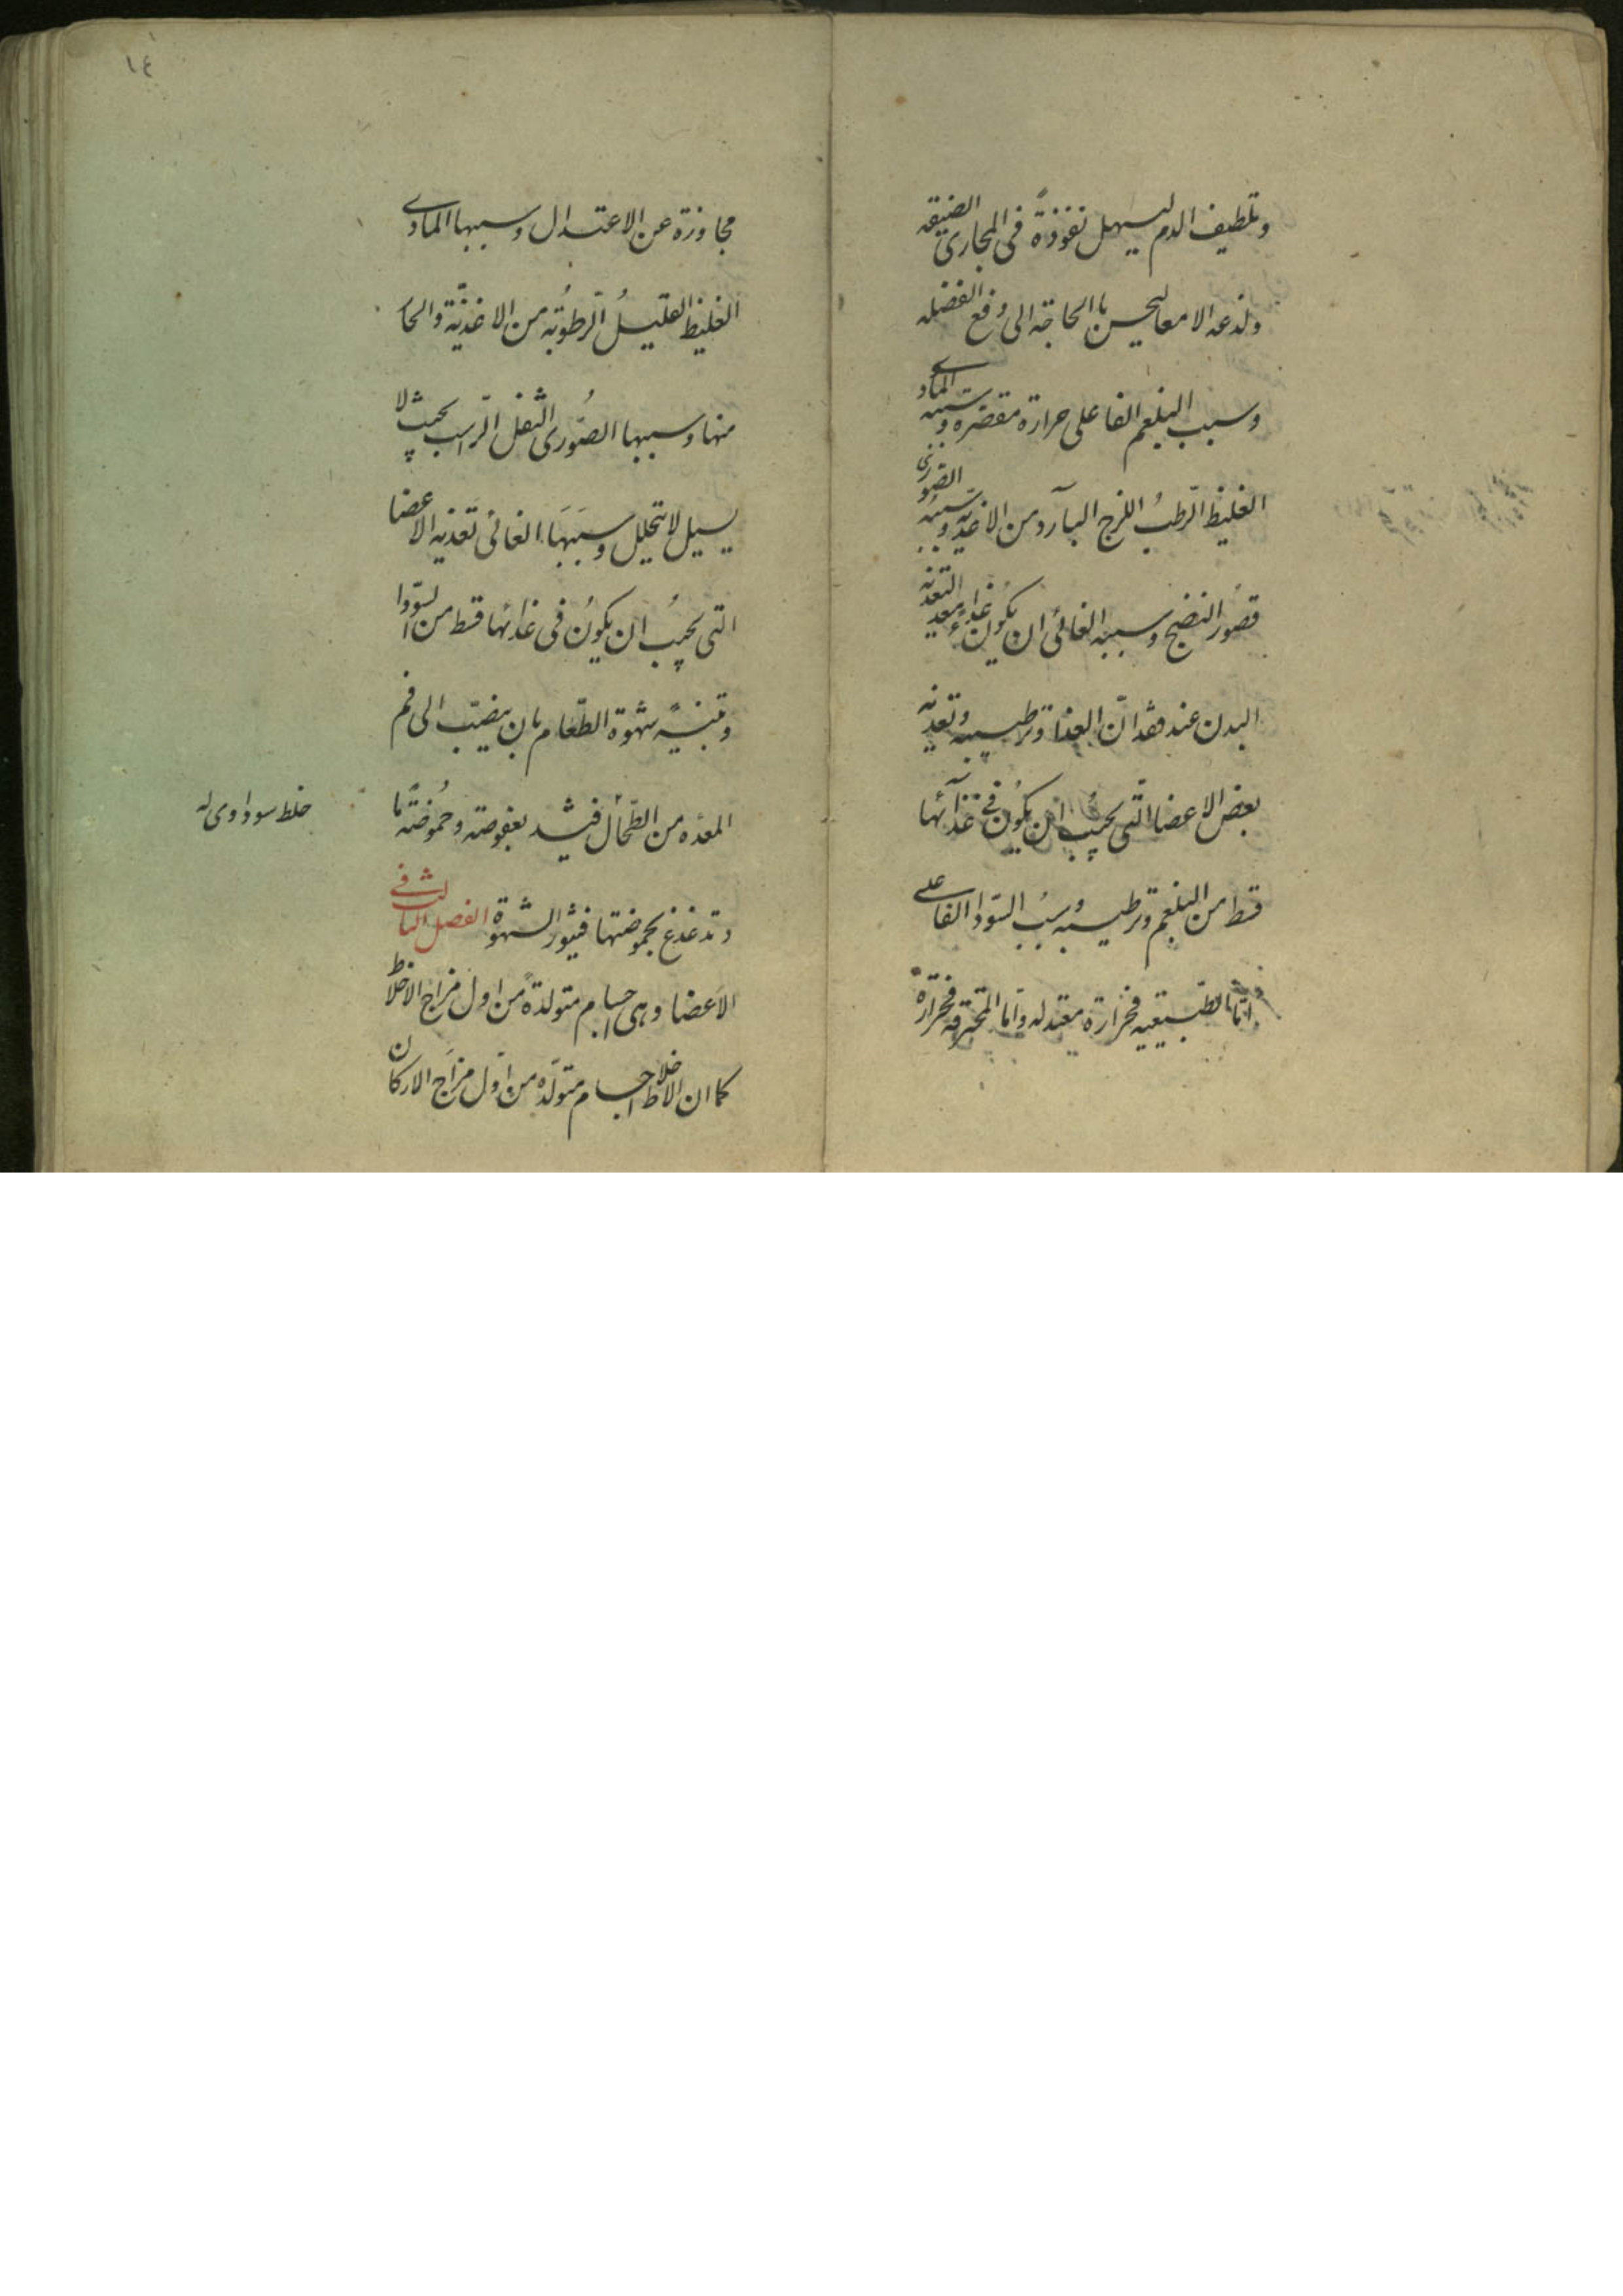 وتلطيف الدم ليسهل نفوذة في المجاري الضيقه
ولذعه الامعا ليحس باالحاجة الى دفع الفضله
وسبب البلغم الفاعلى حرارة مقصره وسببه المادى
الغليظ الرّطبُ اللزج البآرد من الاغذيه وسببه الصّورى
قصُور النضج وسببه الغائى ان يكون غذاء معد التغذيه
البدن عند فقدانّ الغذا وترطيبه وتغديه
بعض الاعضا الّتى يجب ان يكوُن فى غذآئها
قسط من البلغم وترطيبه وسببُ السّودا الفاعلى
امّا الطّبيعيه فحرارة معتدله وامّا المحترقه فحرارة
١٤
مجاوزة عن الاعتدال وسببها المادى
الغليظ القليلُ الرّطوُبة من الاغذيّة والحار
منها وسببها الصُورى الثفل الرّاسب بحيث لا
يسيل لا يتحلل وسببَهَا الغائى تغذيه الاعضا
التى يجبُ ان يكوُن فى غذائها قسط من السّودا
وتنبيه شهوة الطّعام بان ينصبّ الى فم
المعده من الطّحال فيشد بعفوصته وحمُوضته
خلط سوداوى له
وتدغدغ بحموضتها فيثور الشهوة الفصل الثالث فى
الاَعضا وهى اجسام متولدة من اول مزاج الاخلاط
كما ان الاخلاط اجسام متولّده من اوّل مزَاج الاركان